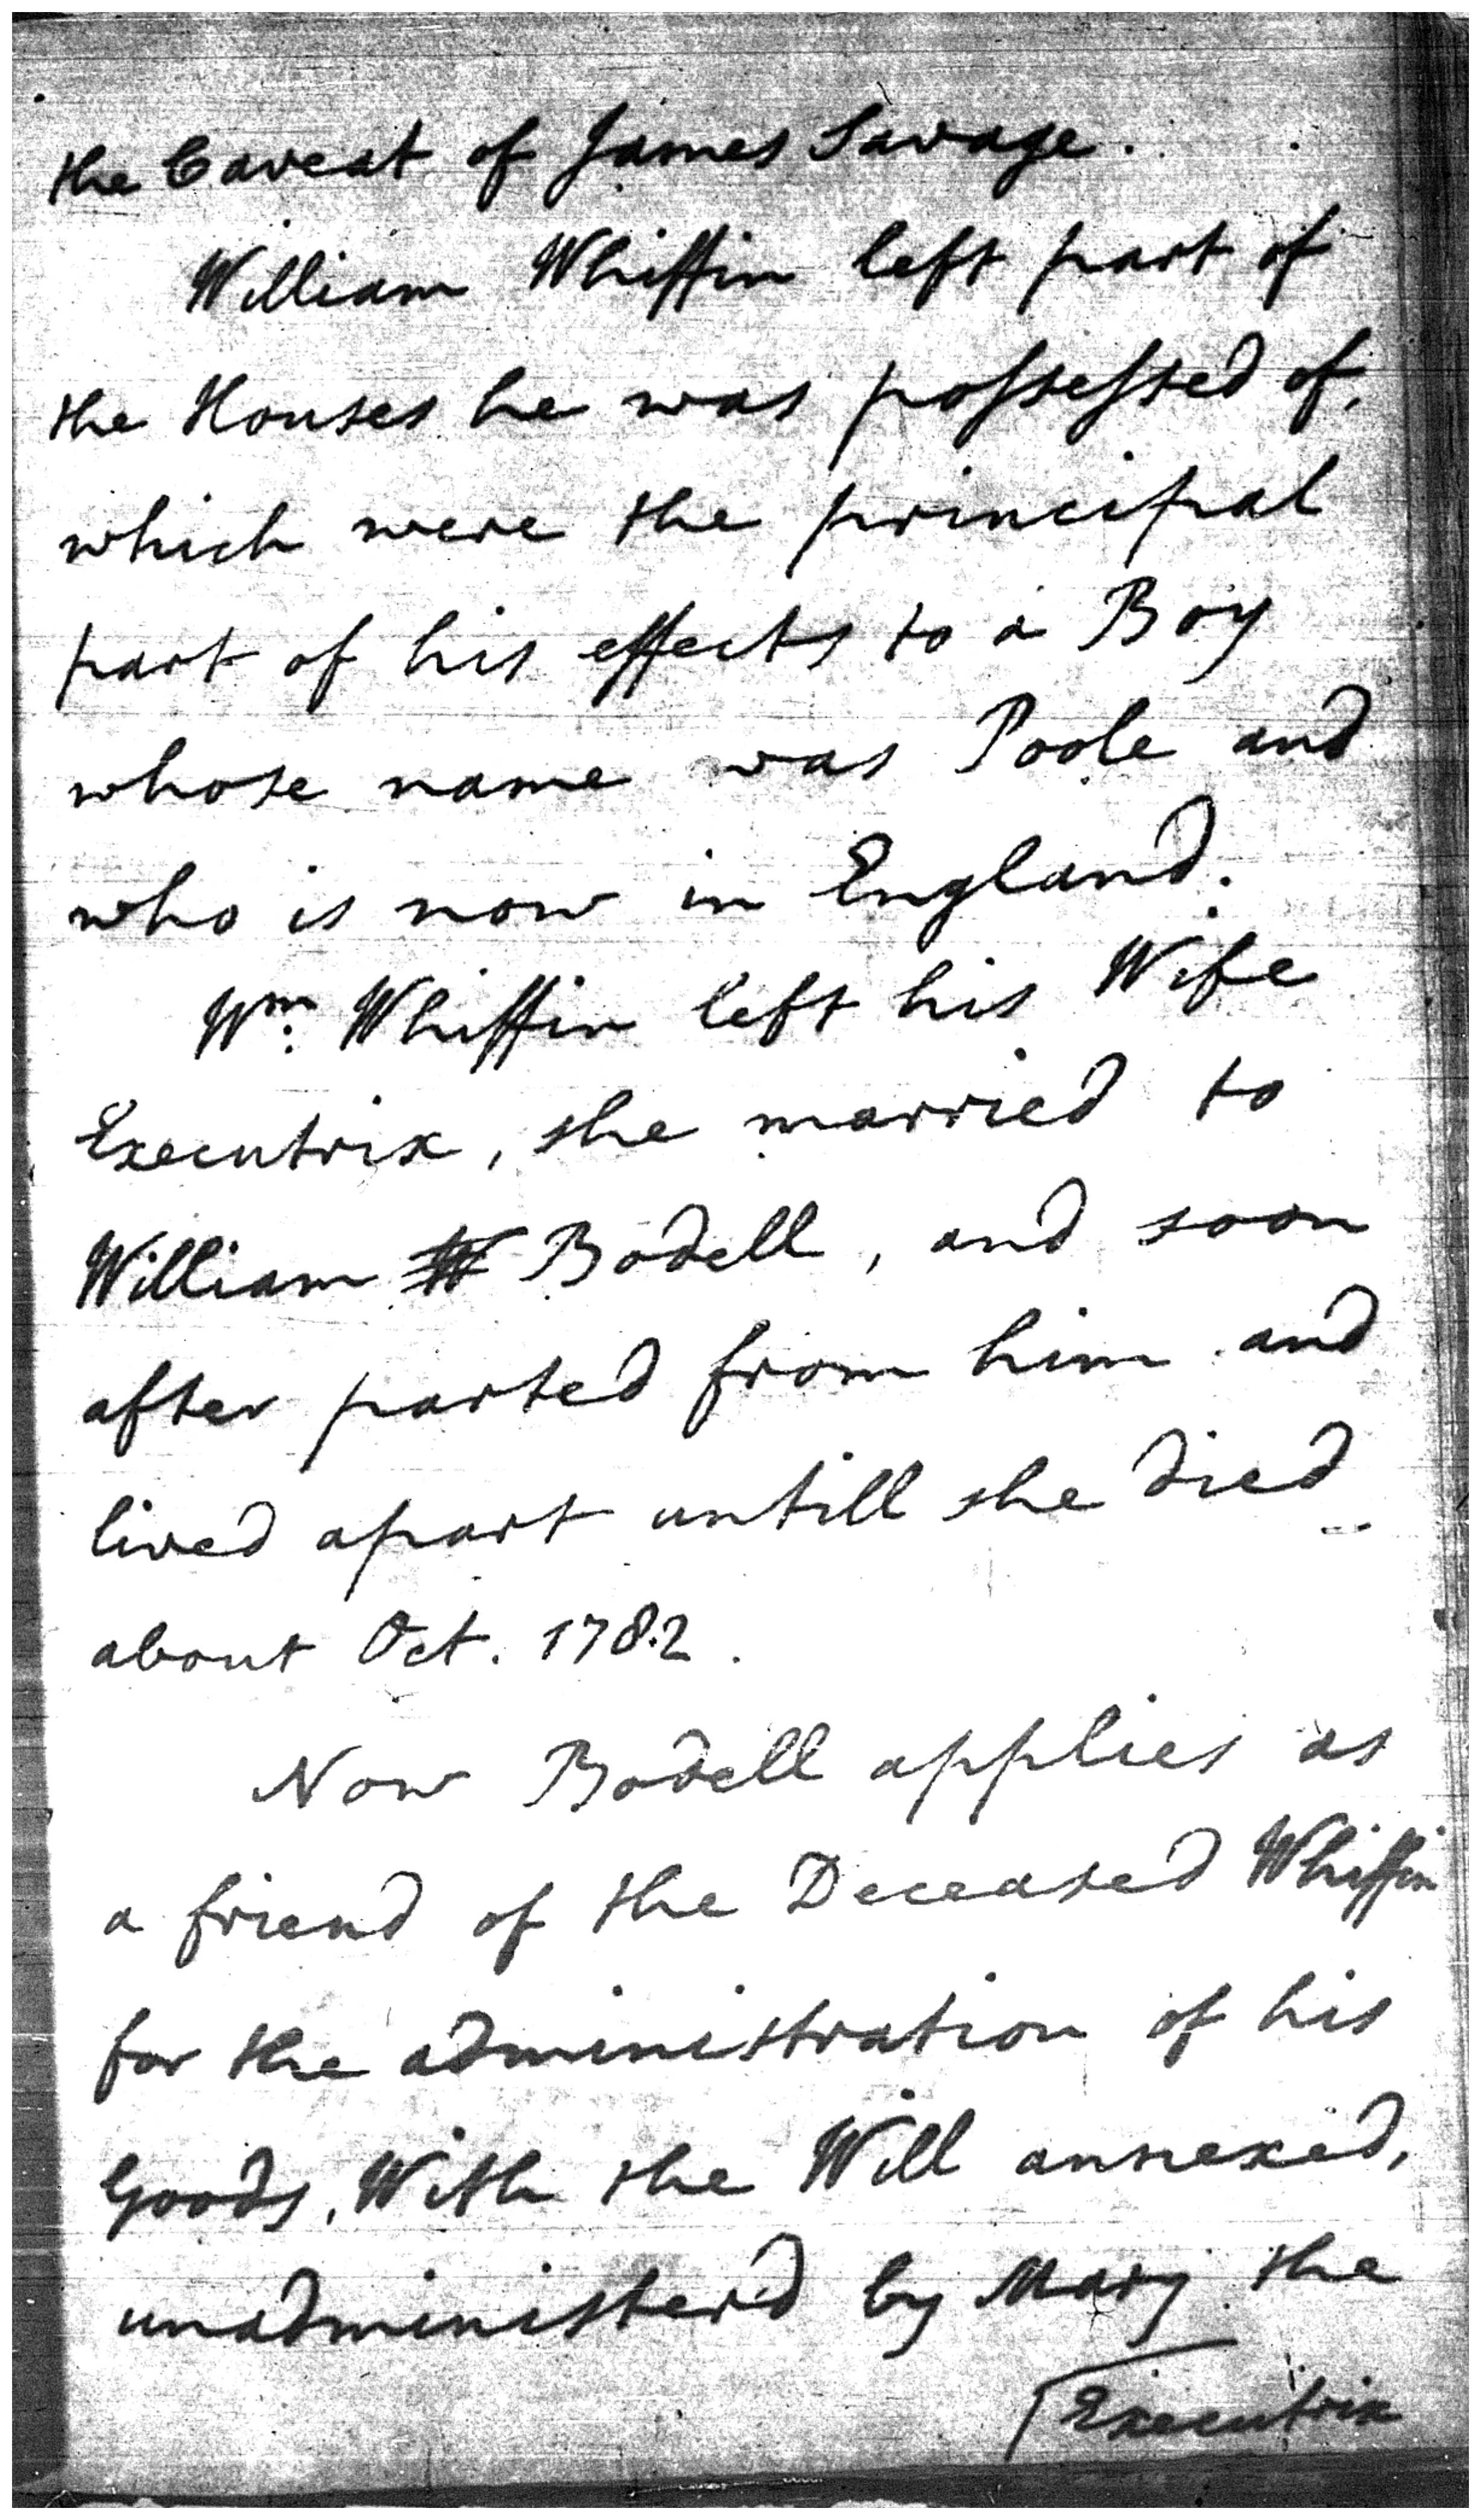 the Caveat of James Savage.
William Whiffin left part of
the Houses he was possessed of,
which were the principal
part of his effects to a Boy
whose name was Poole and
who is now in England.
Wm. Whiffin left his Wife
Executrix, she married to
William W Bodell, and soon
after parted from him and
lived apart untill she died
about Oct. 1782.
Now Bodell applies as
a friend of the Deceased Whiffin
for the administration of his
Goods, With the Will annexed,
unadministerd by Mary the
Executrix